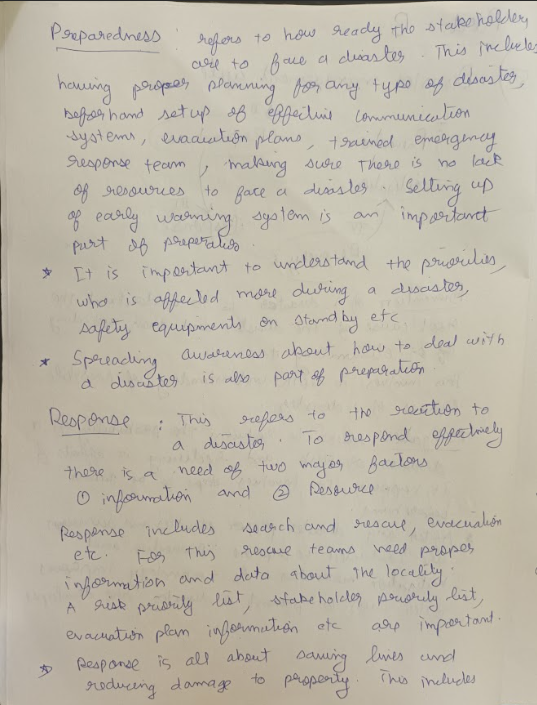 Preparedness : refers to how ready the stakeholders
are to face a disaster. This includes
having proper planning for any type of disaster,
beforhand setup of effective communication
systems, evacuation plans, trained emergency
response team, making sure there is no lack
of resources to face a disaster. Setting up
of early warning system is an important
part of preparation.
* It is important to understand the priorities,
who is affected more during a disaster,
safety equipments on standby etc
* Spreading awareness about how to deal with
a disaster is also part of preparation.
Response : This refers to the reaction to
a disaster. To respond effectively
there is a need of two major factors
① information and ② Resource.
Response includes search and rescue, evacuation
etc. For this rescue teams need proper
information and data about the locality.
A risk priority list, stakeholder priority list,
evacuation plan information etc are important.
* Response is all about saving lives and
reducing damage to property. This includes